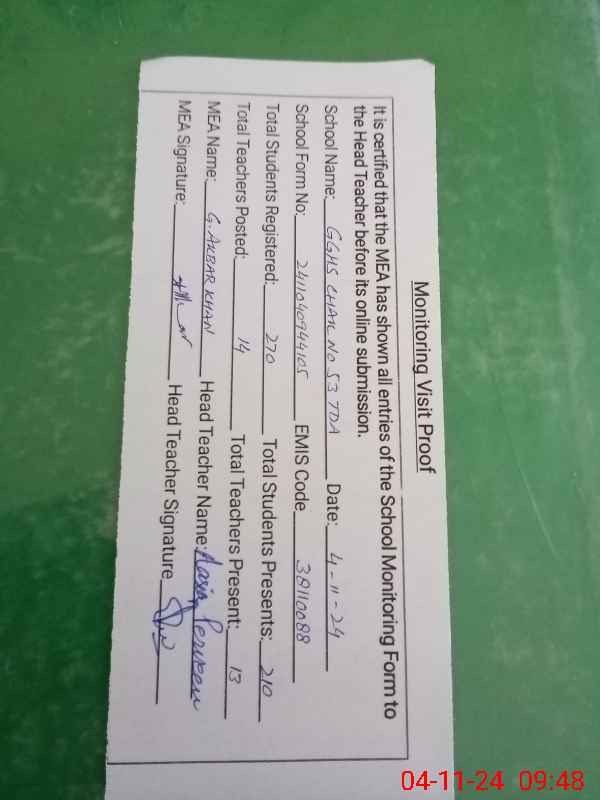 Monitoring Visit Proof
It is certified that the MEA has shown all entries of the School Monitoring Form to
the Head Teacher before its online submission.
School Name: GGHS CHAK NO 53 TDA Date: 4-11-24
School Form No: 241104094410S EMIS Code 38110088
Total Students Registered: 270 Total Students Presents: 210
Total Teachers Posted: 14 Total Teachers Present: 13
MEA Name: G. AKBAR KHAN Head Teacher Name: Aasia Perveen
MEA Signature: Head Teacher Signature
04-11-24 09:48